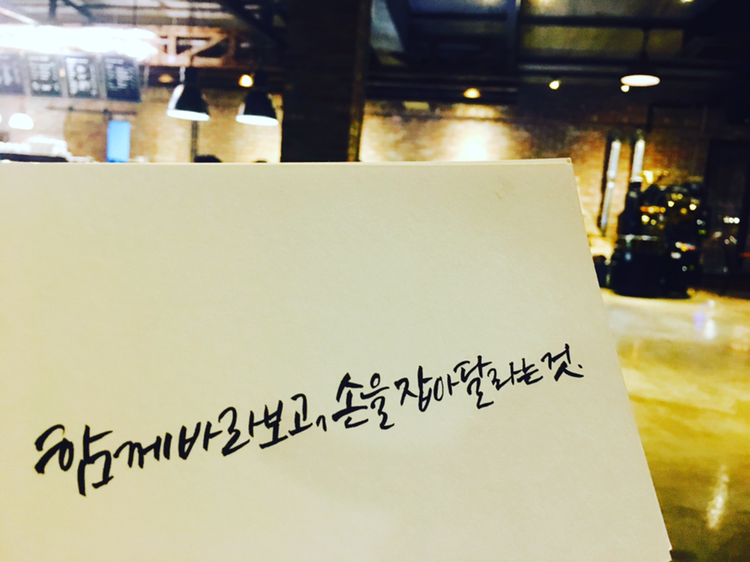 함께 바라보고, 손을 잡아달라는 것.